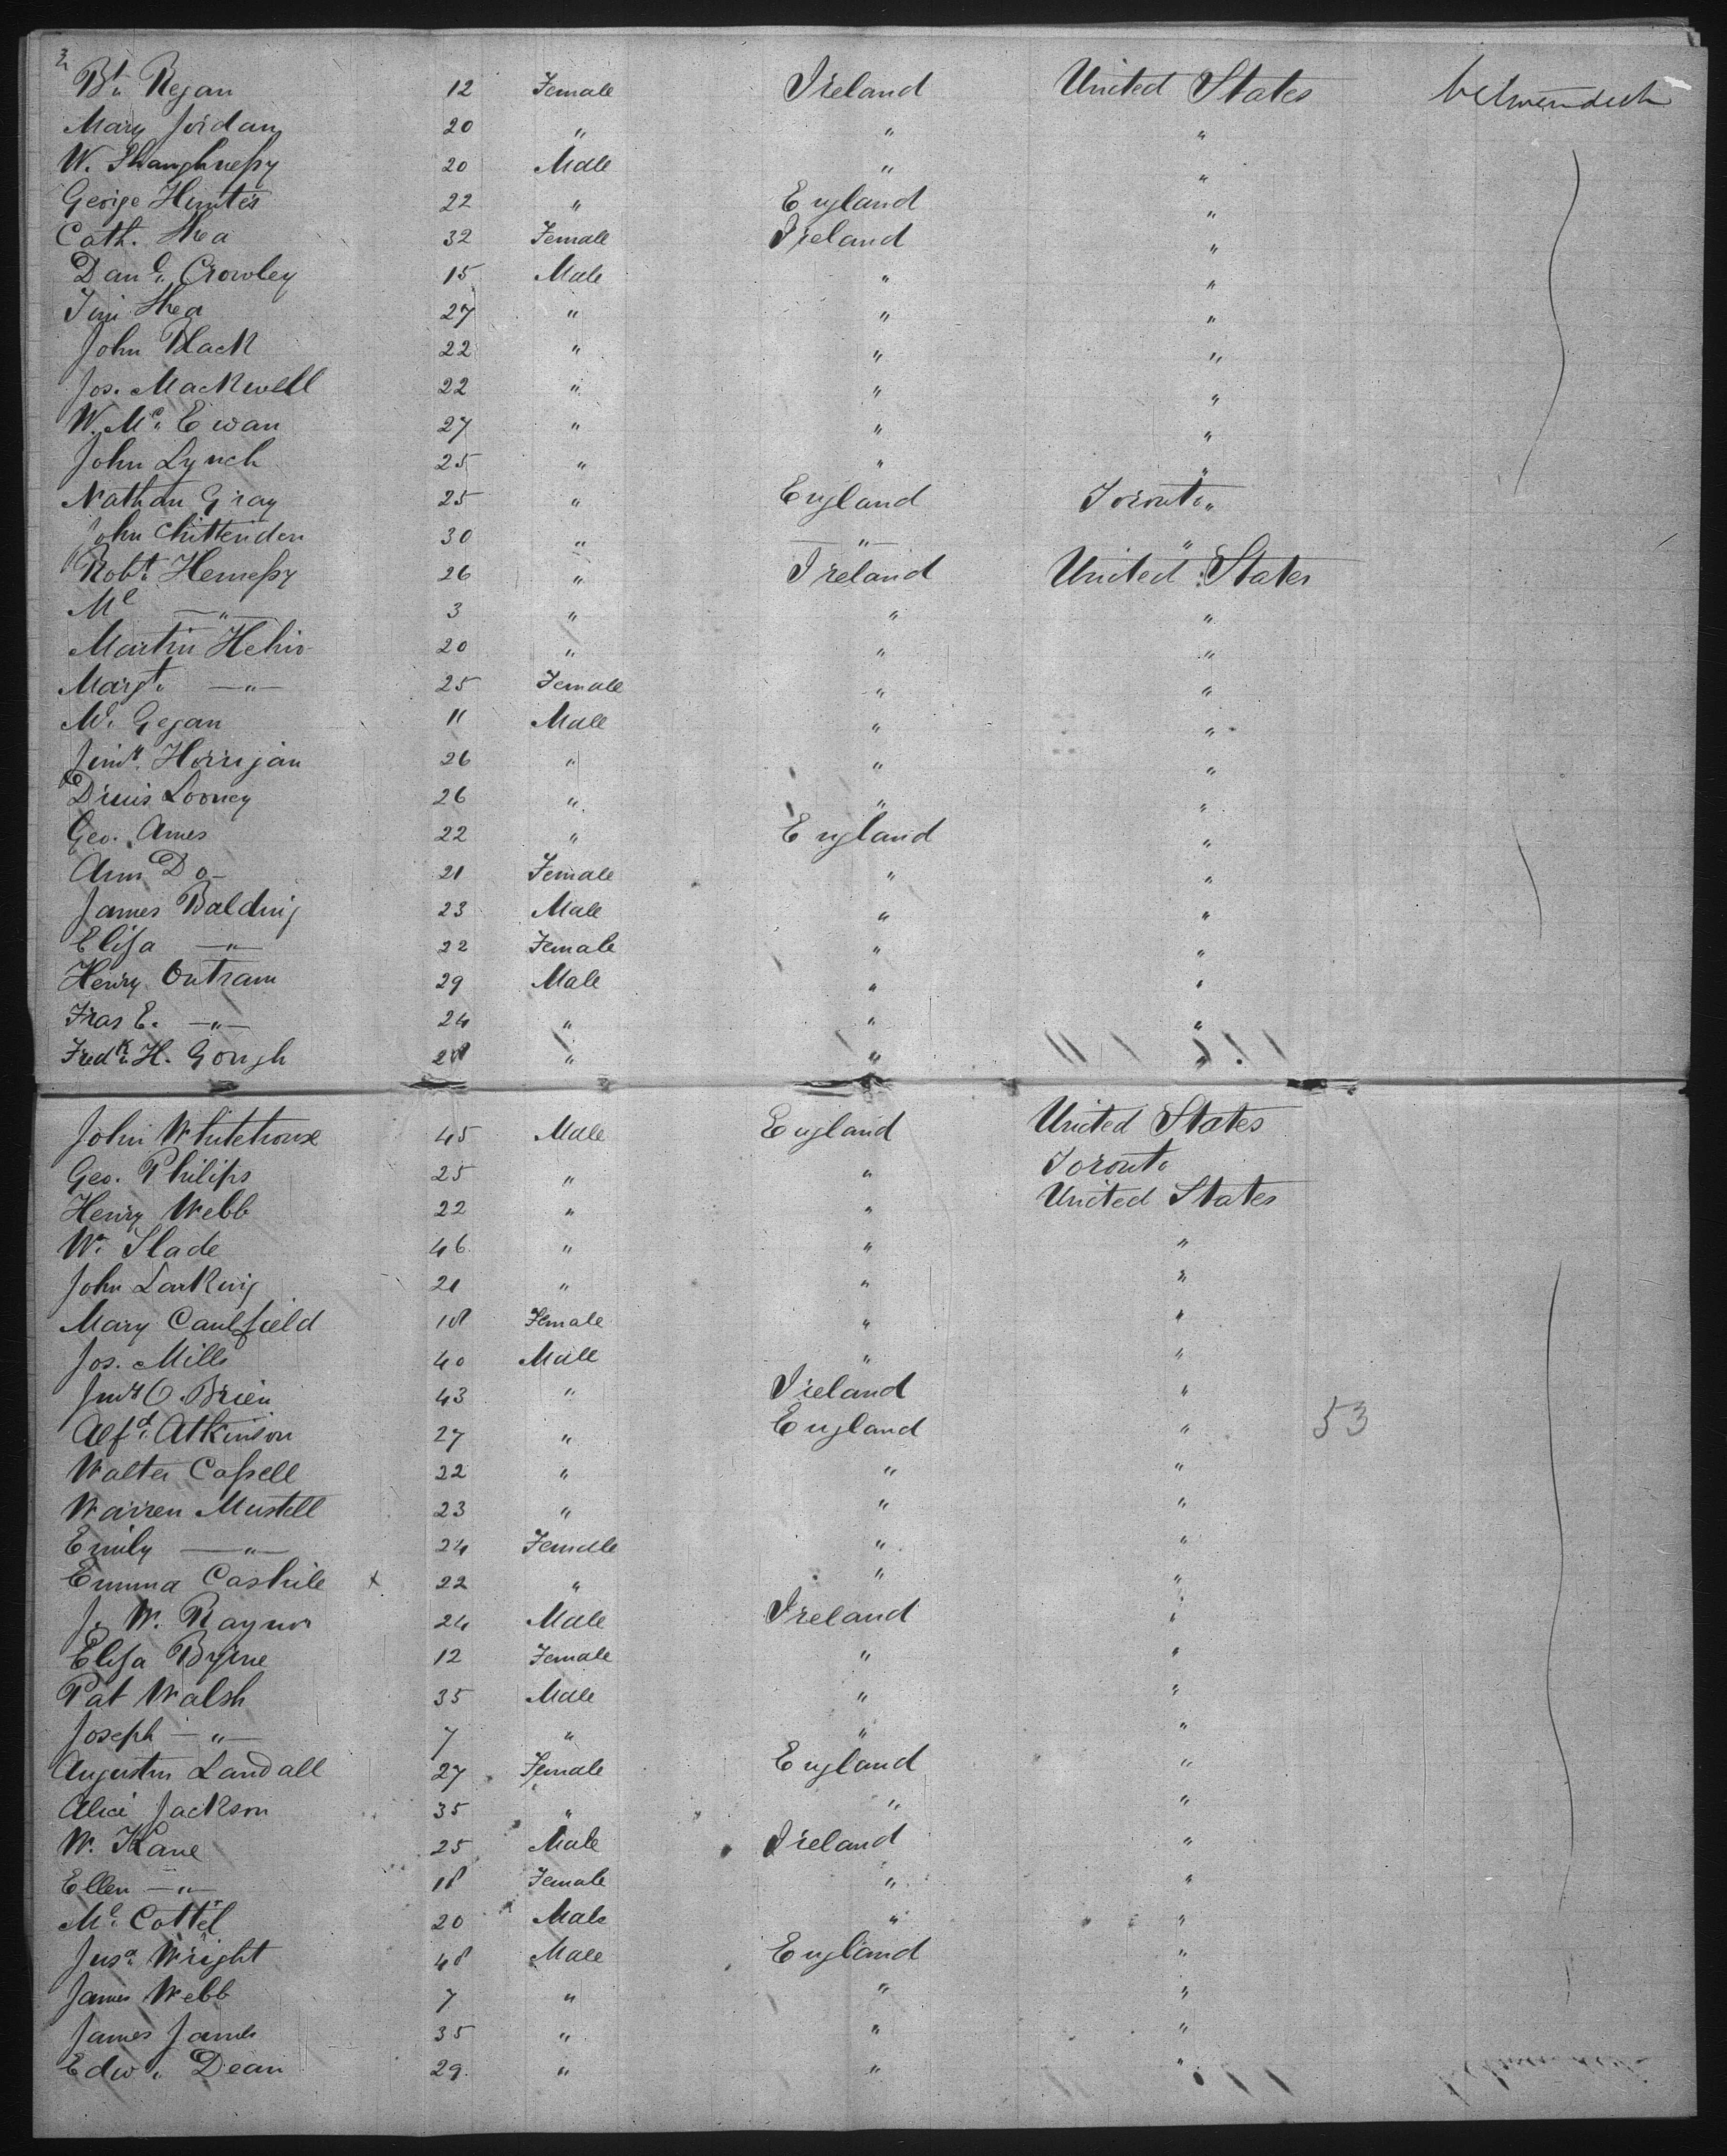 3
Bt. Regan 12 Female Ireland United States between deck
Mary Jordan 20 " " "
W. Shaughneſsy 20 Male " "
George Hunter 22 " England "
Cath. Shea 32 Female Ireland "
Danl. Crowley 15 Male " "
Jim Shea 27 " " "
John Black 22 " " "
Jos. Mackwell 22 " " "
W. Mc. Ewan 27 " " "
John Lynch 25 " " "
Nathan Gray 25 " England Toronto "
John Chittenden 30 " " "
Robt. Henneſsy 26 " Ireland United States
Ml " 3 " " "
Martin Hehir 20 " " "
Margt. " 25 Female " "
Ml. Gegan 11 Male " "
Horrigan 26 " " "
Denis Looney 26 " " "
Geo. Ames 22 " England "
Ann Do 21 Female " "
James Balding 23 Male " "
Eliſa " 22 Female " "
Henry Outram 29 Male " "
Fras E. " 24 " " "
Fredk. H. Gough 28 " " "
John Whitehouse 45 Male England United States
Geo. Philips 25 " " Toronto
Henry Webb 22 " " United States
Wm. Slade 46 " " "
John Larking 21 " " "
Mary Caulfield 18 Female " "
Jos. Mills 40 Male " "
O. Brien 43 " Ireland "
Alfd. Atkinson 27 " England " 53
Walter Caſsell 22 " " "
Warren Mustell 23 " " "
Emily " 24 Female " "
Emma Cashile x 22 " " "
J. W. Raynor 24 Male Ireland "
Eliſa Byrne 12 Female " "
Pat Walsh 35 Male " "
Joseph " 7 " " "
Augustus Landall 27 Female England "
Alice Jackson 35 " " "
W. Kane 25 Male Ireland "
Ellen " 18 Female " "
Ml. Cottel 20 Male " "
Wright 48 Male England "
James Webb 7 " " "
James James 35 " " "
Edw. Dean 29 " " "